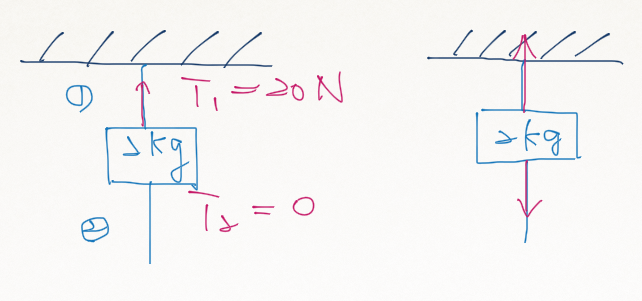 ① T₁ = 20 N
2 kg
② T₂ = 0
2 kg